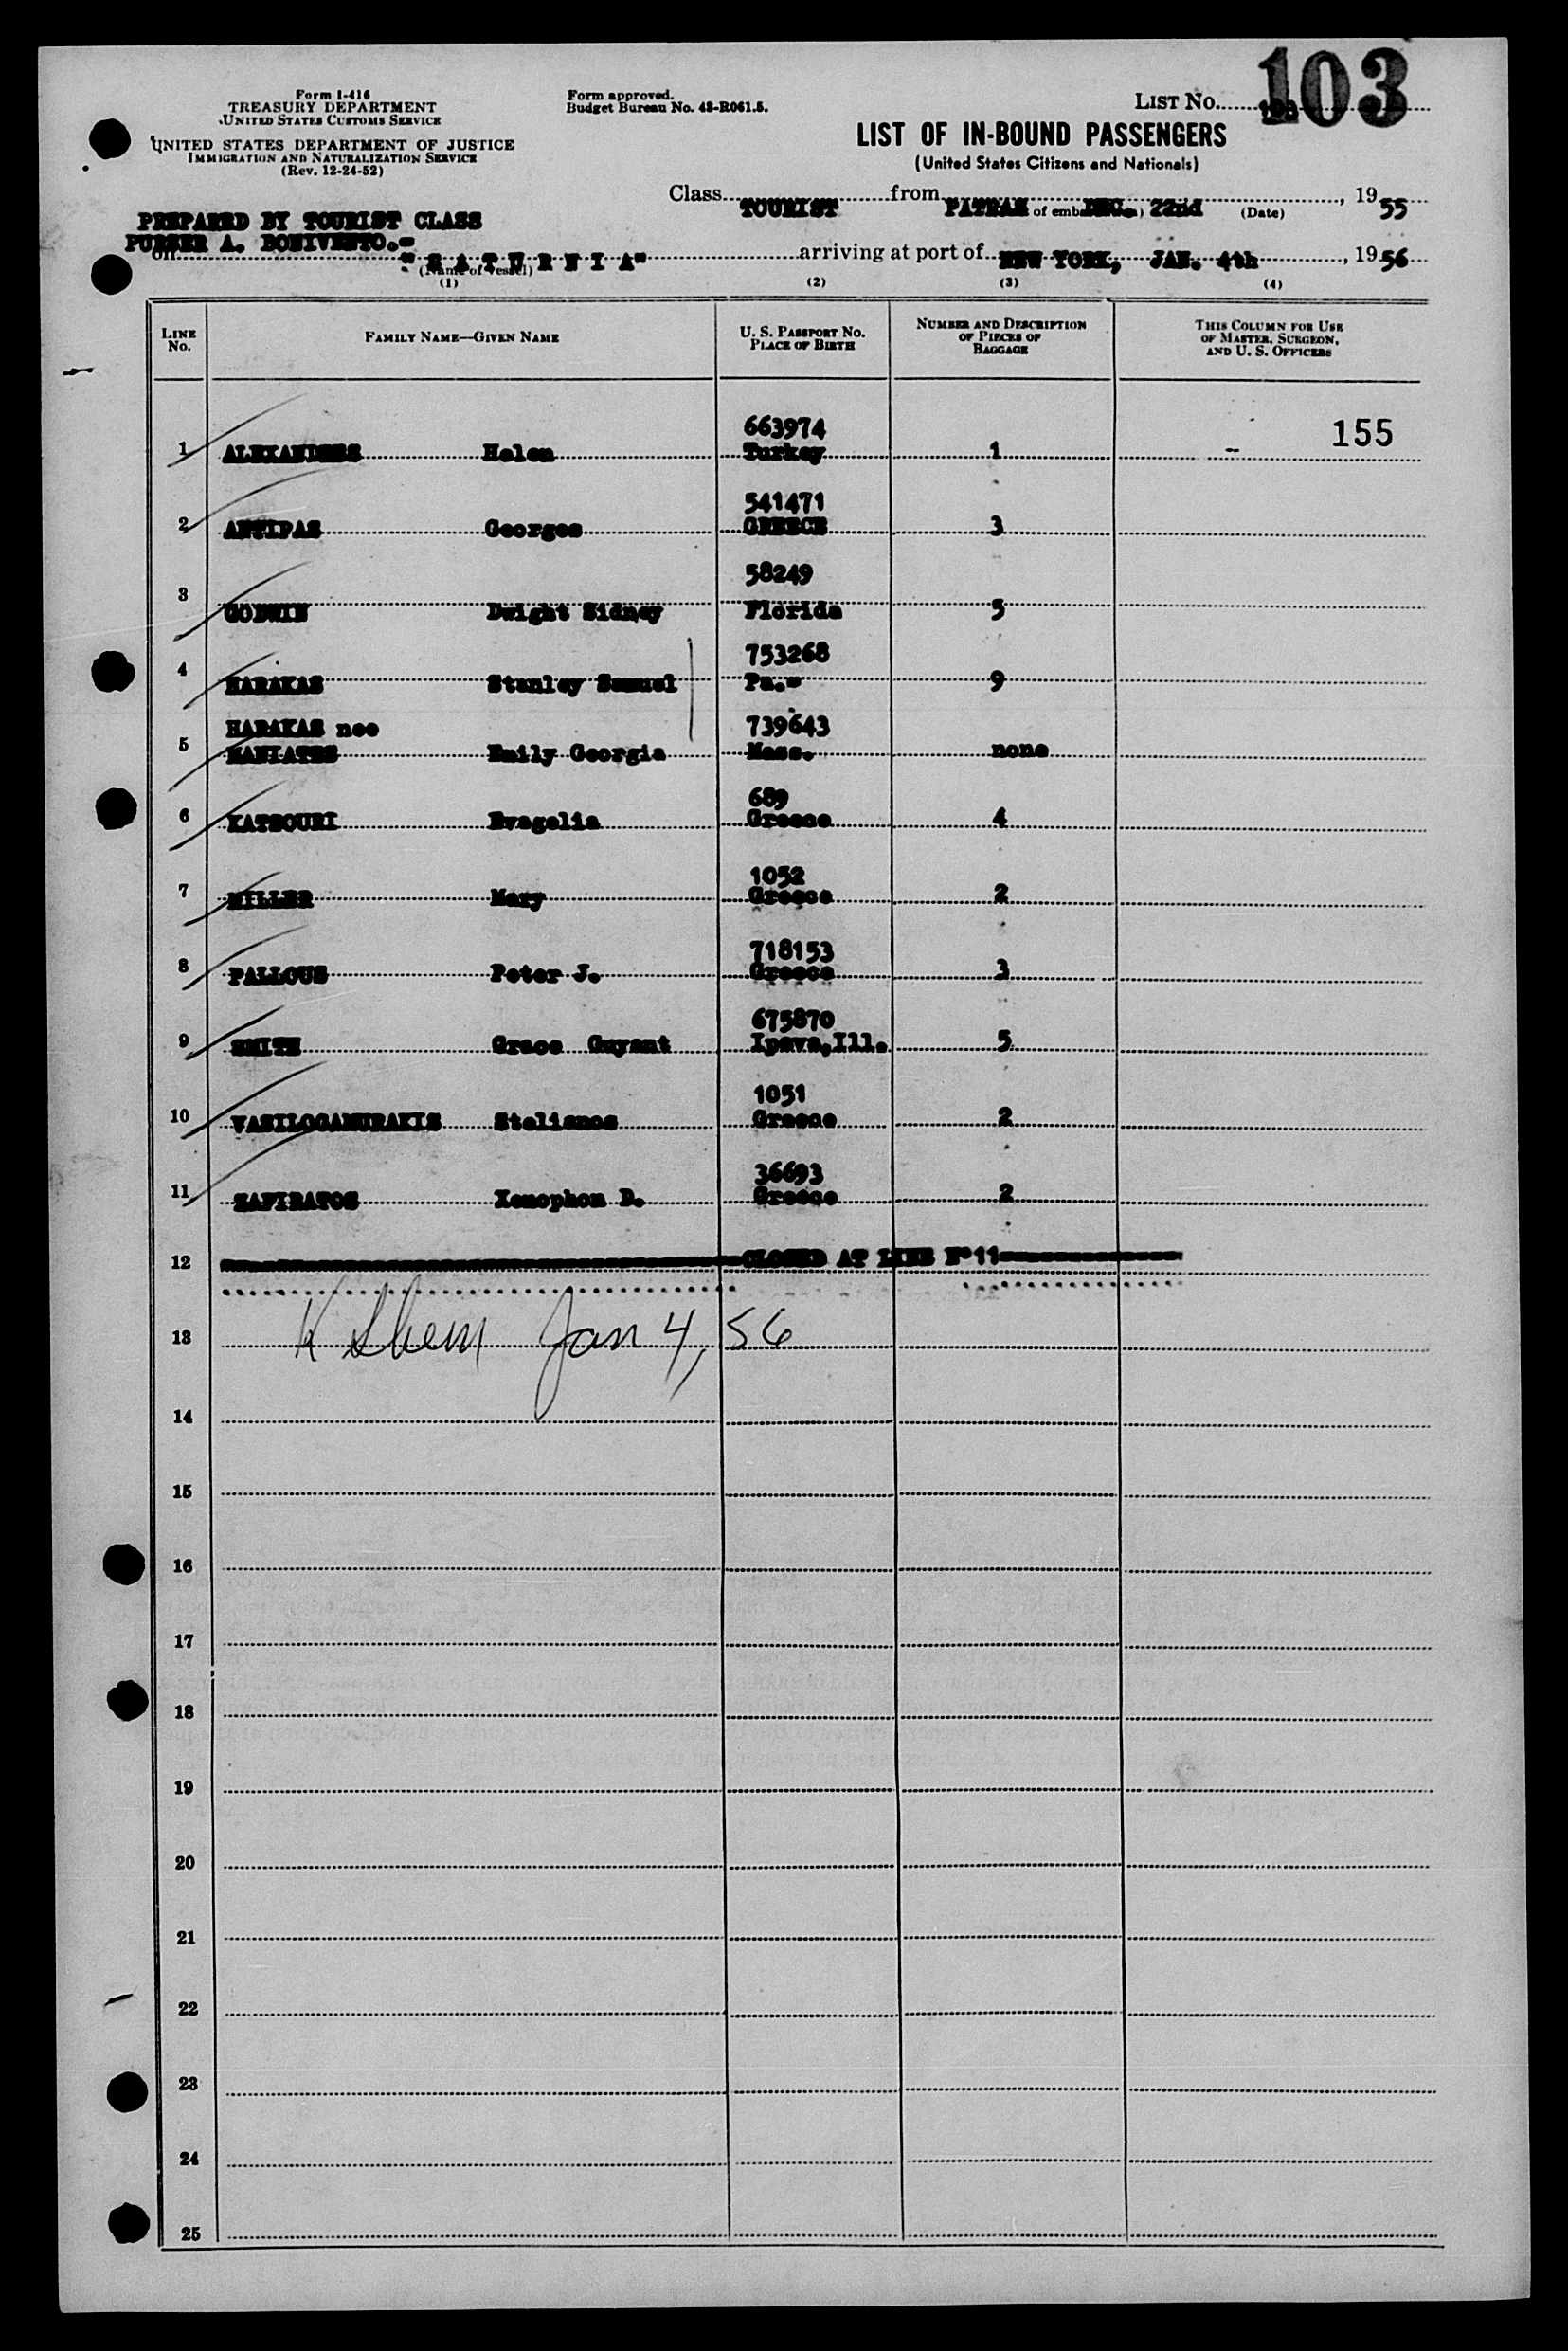 Form I-416
TREASURY DEPARTMENT
UNITED STATES CUSTOMS SERVICE
UNITED STATES DEPARTMENT OF JUSTICE
IMMIGRATION AND NATURALIZATION SERVICE
(Rev. 12-24-52)
Form approved.
Budget Bureau No. 43-R061.5.
LIST No. 103
LIST OF IN-BOUND PASSENGERS
(United States Citizens and Nationals)
Class TOURIST from PATRAS DEC. 22nd (Date), 1955
PREPARED BY TOURIST CLASS
PURSER A. BONIVENTO.=
on "S A T U R N I A" arriving at port of NEW YORK, JAN. 4th, 1956
(Name of vessel)
(1) (2) (3) (4)
LINE No. FAMILY NAME—GIVEN NAME U. S. PASSPORT NO. PLACE OF BIRTH NUMBER AND DESCRIPTION OF PIECES OF BAGGAGE THIS COLUMN FOR USE OF MASTER, SURGEON, AND U. S. OFFICERS
663974 155
1 Helen Turkey 1 -
541471
2 ANTIPAS Georges GREECE 3
58249
3 GODWIN Dwight Sidney Florida 5
753268
4 HARAKAS Stanley Samuel Pa.= 9
HARAKAS nee 739643
5 MANIATES Emily Georgia Mass. none
689
6 KATSOURI Evagelia Greece 4
1052
7 MILLER Mary Greece 2
718153
8 PALLOUS Peter J. Greece 3
675870
9 SMITH Grace Guyant Ipava,Ill. 5
1051
10 VASILOGAMURAKIS Stelianos Greece 2
36693
11 ZAFIRATOS Xenophon D. Greece 2
12 CLOSED AT LINE N°11
13 K Jan 4, 56
14
15
16
17
18
19
20
21
22
23
24
25